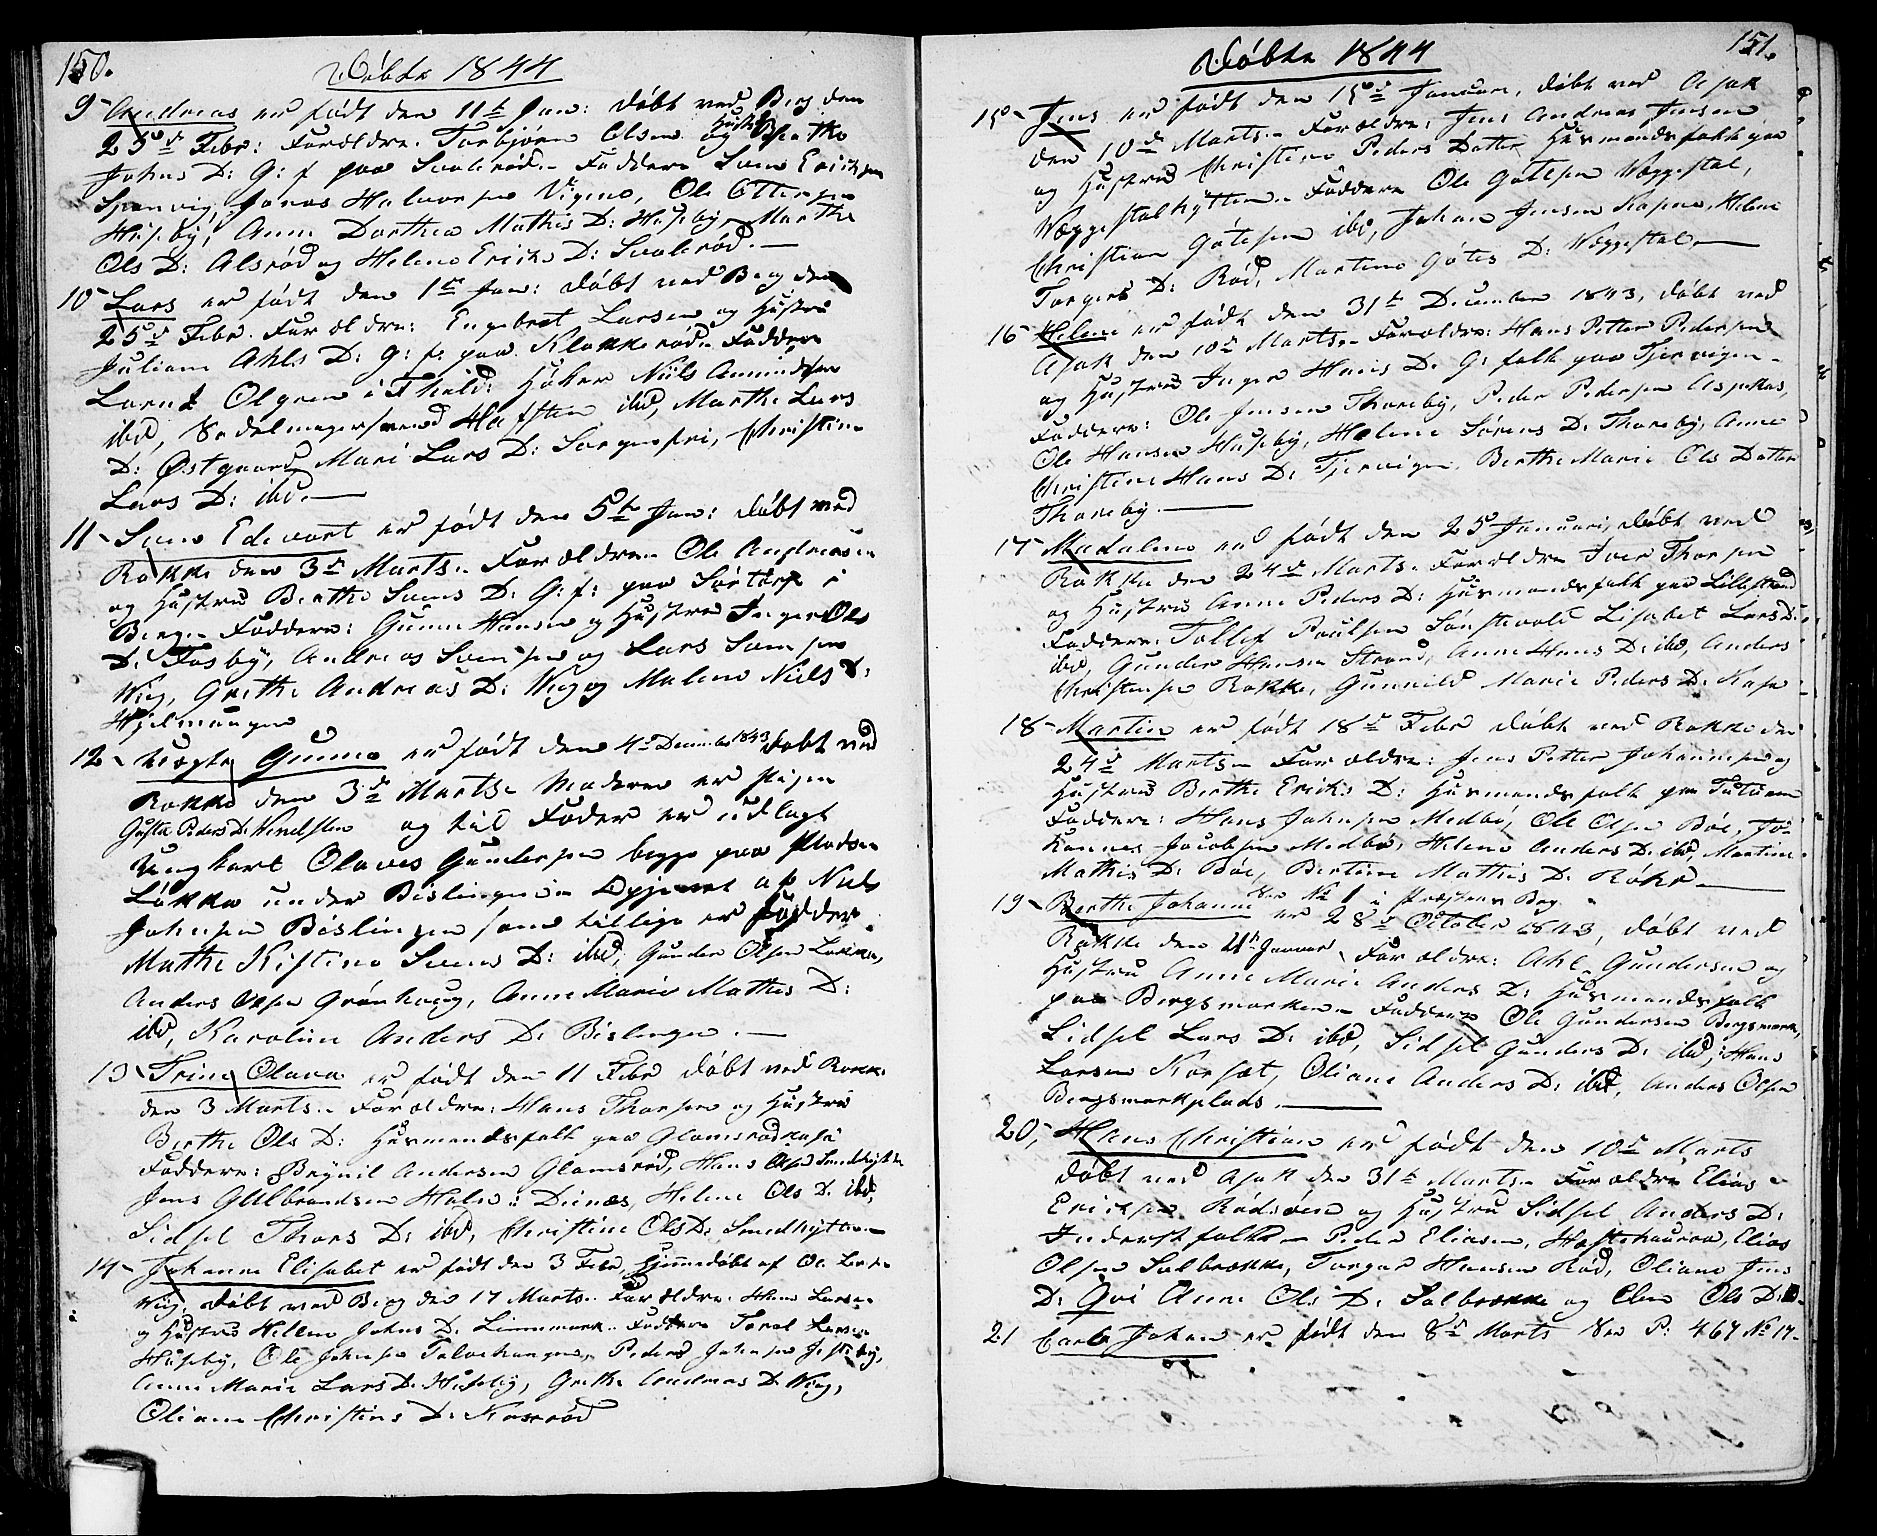 150.
Döbte 1844
9 Andreas er født den 11te Jan: døbt ved Berg den
25de Febr: Forældre. Torbjørn Olsen og Hustru Marthe
Johns D: G: f paa Saalerød. Faddere Svend Ericksen
Sponvig, Jonas Halvorsen Vigene, Ole Ottersen
Huseby, Anne Dorthea Mathis D: Huseby, Marthe
Ols D: Alsrød og Helene Ericks D: Saalerød.
10 Lars er født den 1ste Jan: døbt ved Berg den
25de Febr. Forældre: Engebret Larsen og Hustru
Juliane Ahls D: G: f: paa Klokkerød. Faddere
Lornt Olgren i Fhald: Høker Niils Amundsen
ibid, Sadelmagersvend Hafsten ibid, Marthe Lars
D: Østgaard, Mari Lars D: Sorgenfri, Christine
Lars D: ibid.
11 Svend Edevart er født den 5te Jan: døbt ved
Rokke den 3de Marts. Forældre Ole Andreasen
og Hustru Berthe Svens D: G: f: paa Sørtorp i
Berg. Faddere: Gunne Hansen og Hustru Inger Ols
D: Fosby, Andreas Svensen og Lars Svensen
Wiig, Grethe Andreas D: Wiig og Malene Niels D:
Hjelmungen
12 Uægte Gunne er født den 4de December 1843 døbt ved
Rokke den 3de Marts. Moderen er pigen
Gusta Peders D: Venelsten og til Fader er udlagt
Ungkarl Olaves Gundersen begge paa pladsen
Løkka under Bislingen Opgivet af Niels
Johnsen Bislingen som tillige er Fadder
Mathe Kistine Svens D: ibid, Gunder Olsen Løkka,
Anders Olsen Grønhaug, Anne Marie Mathis D:
ibid, Karoline Anders D: Bislingen.
13 Trine Olava er født den 11 Febr døbt ved Rokke
den 3 Marts. Forældre: Hans Thorsen og Hustru
Berthe Ols D: Husmandsfolk paa Glamsrødkasa
Faddere: Brynil Andersen Glamsrød, Hans Olsen Smedhytten
Jens Gulbrandsen Holm i Dienæs, Helene Ols D: ibid,
Sidsel Thors D: ibid, Christine Ols D: Smedhytten
14 Johanne Elisabet er født den 3 Febr, hjemmedøbt af Ole Larsen
Wiig, døbt ved Berg den 17 Marts. Forældre: Hans Larsen
og Hustru Hellene Johns D: Linnemark. Faddere Toral Larsen
Huseby, Ole Johnsen Telvehaugen, Peder Johnsen Isebye,
Anne Marie Lars D: Huseby, Grethe Andreas D: Wiig,
Oliane Christens D: Kaserød
151.
Döbte 1844
15 Jens er født den 15de Januar, døbt ved Asak
den 10de Marts. Forældre: Jens Andreas Jensen
og Hustru Christine Peders Datter Husmandsfolk paa
Væggestølhytten. Faddere Ole Gotesen Væggestøl,
Christian Gotesen ibid, Johan Jensen Kasene, Helene
Torgers D: Rød, Martine Gotes D: Væggestøl.
16 Helene er født den 31te December 1843, døbt ved
Asak den 10de Marts. Forældre: Hans Petter Pedersen
og Hustru Inger Hans D: G: folk paa Tjervigen.
Faddere: Ole Jensen Thoreby, Peder Pedersen Aspekas,
Ole Hansen Huseby, Helene Sørens D: Thoreby, Anne
Christine Hans D: Tjervigen, Berthe Marie Ols Datter
Thoreby.
17 Madalene er født den 25 Januari, døbt ved
Rokke den 24de Marts. Forældre Iver Thorsen
og Hustru Anne Peders D: Husmandsfolk paa Lillestrand
Faddere: Tollef Poulsen Sønstevold Lisabet Lars D:
ibid, Gunder Hansen Strand, Anne Hans D: ibid, Anders
Christensen Rokke, Gunnild Marie Peders D: Kasa
18 Martin er født 18de Febr døbt ved Rokke den
24de Marts. Forældre: Jens Petter Johannesen og
Hustrue Berthe Ericks D: Husmandsfolk paa Tutura
Faddere: Hans Johnsen Medbø, Ole Olsen Bøe, Jo-
hannes Jacobsen Medbø, Helene Anders D: ibid, Martine
Mathis D: Bøe, Bertine Mathis D: Røhr.
See No 1 i Præstens Bog
19 Berthe Johanne er 28de October 1843, døbt ved
Rokke den 21de Januar Forældre: Ahl. Gundersen og
Hustru Anne Marie Anders D: Husmandsfolk
paa Bergsmarken. Faddere Ole Gundersen Bergsmark,
Sidsel Lars D: ibid, Sidsel Gunders D: ibid, Hans
Larsen Korsæt, Oliane Anders D: ibid, Anders Olsen
Bergsmarkplads.
20, Hans Christian er født den 10de Marts
døbt ved Asak den 31te Marts. Forældre Elias
Ericksen Rødsøen og Hustru Sidsel Anders D:
Inderstfolk. Peder Eliasen, Hestehaureen, Elias
Olsen Salbrække, Torger Hansen Rød, Oliane Jens
D: Qvi Anne Ols D: Salbrække og Elen Ols D:
21 Carl Johan er født den 8de Marts See P: 467 No 17.